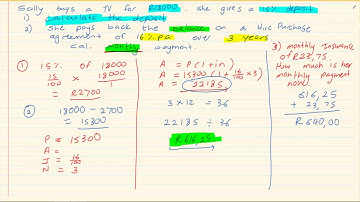 Sally buys a TV for R18000. she gives a 15% deposit
1) calculate the deposit
2) she pays back the balance on a Hire Purchase
agreement of 16% p.a over 3 years
cal. monthly payment.
① 15% of 18000
15/100 × 18000/1
= R2700
② 18000 - 2700
= 15300
P = 15300
A =
I = 16/100
N = 3
A = P(1+in)
A = 15300(1+ 16/100 × 3)
A = 22185
3 × 12 = 36
22185 ÷ 36
R616,25
3) monthly Insurance
of R23,75.
How much is her
monthly payment
now.
616,25
+ 23,75
R640,00